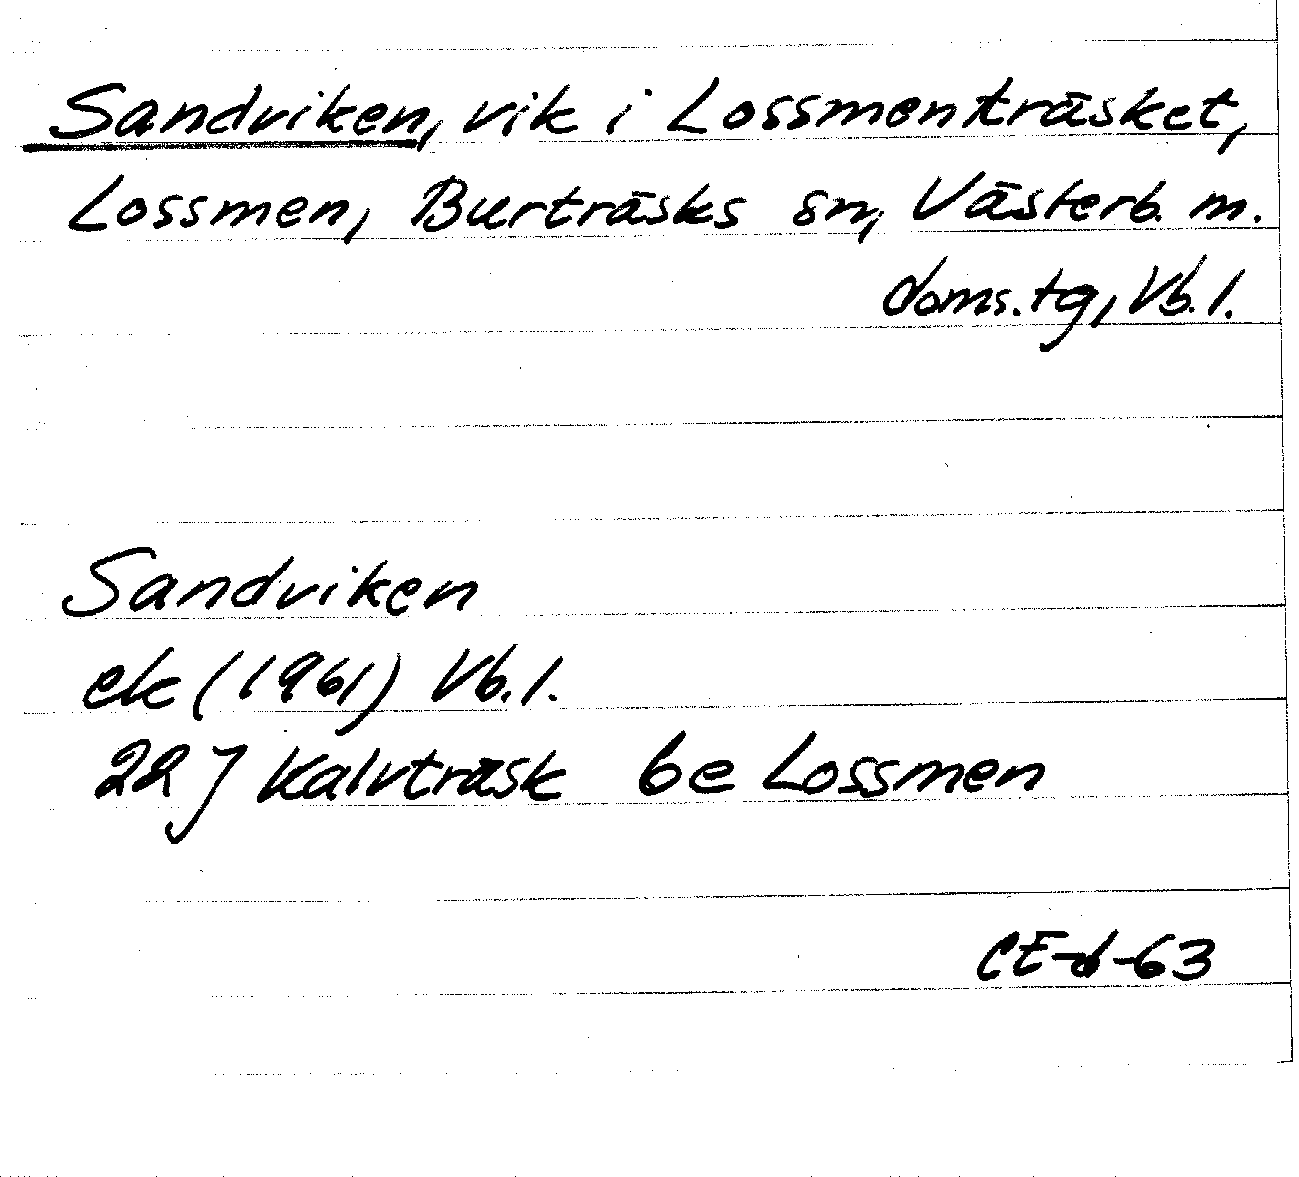 Sandviken, vik i Lossmenträsket,
Lossmen, Burträsks sn, Västerb. m.
doms. tg, Vb. l.
Sandviken
ek (1961) Vb. l.
22 J Kalvträsk be Lossmen
CE-d-63